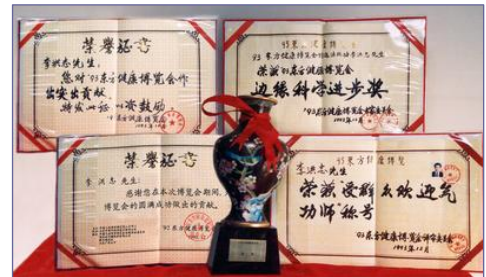 荣誉证书
李洪志先生：
您对'93东方健康博览会作
出突出贡献，
特发此证以资鼓励。
'93东方健康博览会
1993年12月
李洪志先生：
荣获'93东方健康博览会
边缘科学进步奖
'93东方健康博览会评审委员会
1993年12月
荣誉证书
李洪志先生：
感谢您在本次博览会期间，
博览会的圆满成功做出的贡献。
93东方健康博览
李洪志先生：
荣获"受群众欢迎气
功师"称号
'93东方健康博览会评审委员会
1993年12月